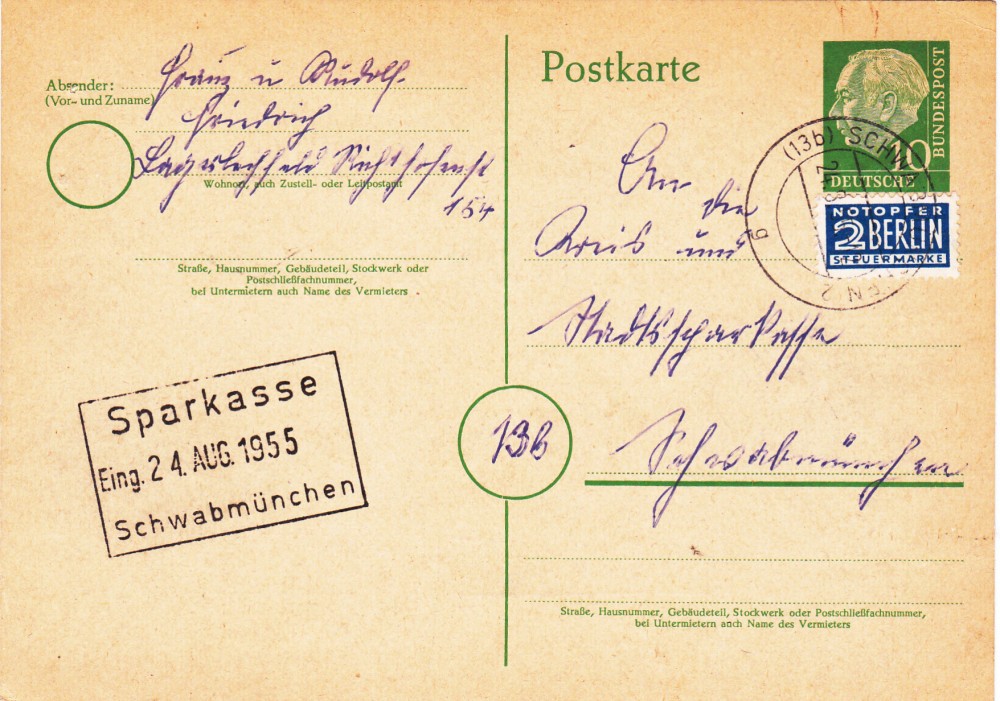 Absender:
(Vor- und Zuname)
Franz u Rudolf
Friedrich
Lagerlechfeld Richthofenst
154
Wohnort, auch Zustell- oder Leitpostamt
Straße, Hausnummer, Gebäudeteil, Stockwerk oder
Postschließfachnummer,
bei Untermietern auch Name des Vermieters
Sparkasse
Eing. 24. AUG. 1955
Schwabmünchen
Postkarte
10
BUNDESPOST
DEUTSCHE
NOTOPFER
2 BERLIN
STEUERMARKE
(13b) SCHWAB
g
An
die
Kreis und
Stadtsparkasse
13b
Schwabmünchen
Straße, Hausnummer, Gebäudeteil, Stockwerk oder Postschließfachnummer,
bei Untermietern auch Name des Vermieters